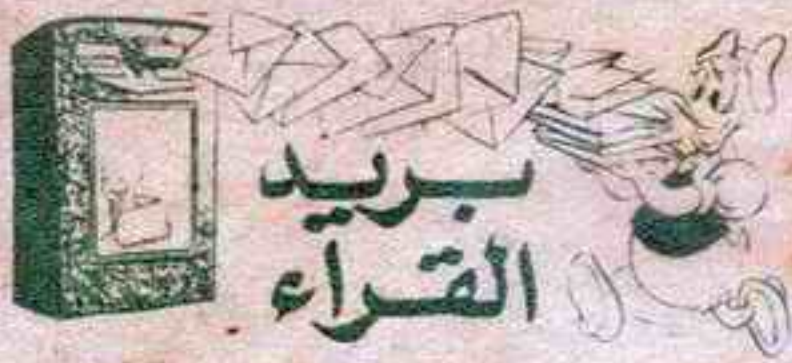 بريد
القراء